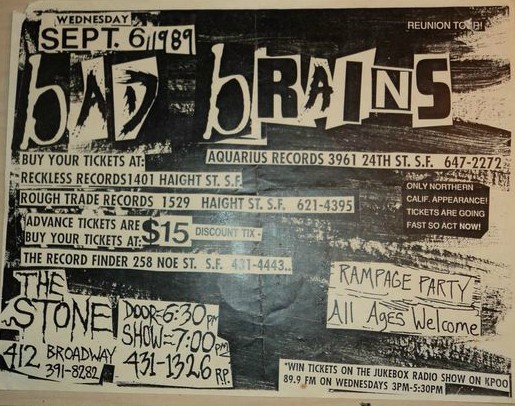 WEDNESDAY
REUNION TOUR!
SEPT. 6, 1989
bAD bRAINS
BUY YOUR TICKETS AT:
AQUARIUS RECORDS 3961 24TH ST. S.F. 647-2272
RECKLESS RECORDS 1401 HAIGHT ST. S.F.
ROUGH TRADE RECORDS 1529 HAIGHT ST. S.F. 621-4395
ONLY NORTHERN
CALIF. APPEARANCE!
TICKETS ARE GOING
FAST SO ACT NOW!
ADVANCE TICKETS ARE $15 DISCOUNT TIX -
BUY YOUR TICKETS AT:
THE RECORD FINDER 258 NOE ST. S.F. 431-4443..
RAMPAGE PARTY
All Ages Welcome
THE
STONE
412 BROADWAY
391-8282
DOOR=6:30 PM
SHOW=7:00 PM
431-1326 R.P.
*WIN TICKETS ON THE JUKEBOX RADIO SHOW ON KPOO
89.9 FM ON WEDNESDAYS 3PM-5:30PM